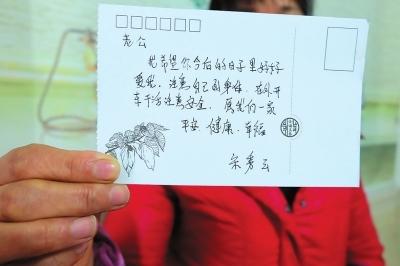 老公
我希望你今后的日子里好好
爱我，注意自己的身体，在外开
车干活注意安全，属我们一家
平安 健康、幸福
宋秀云